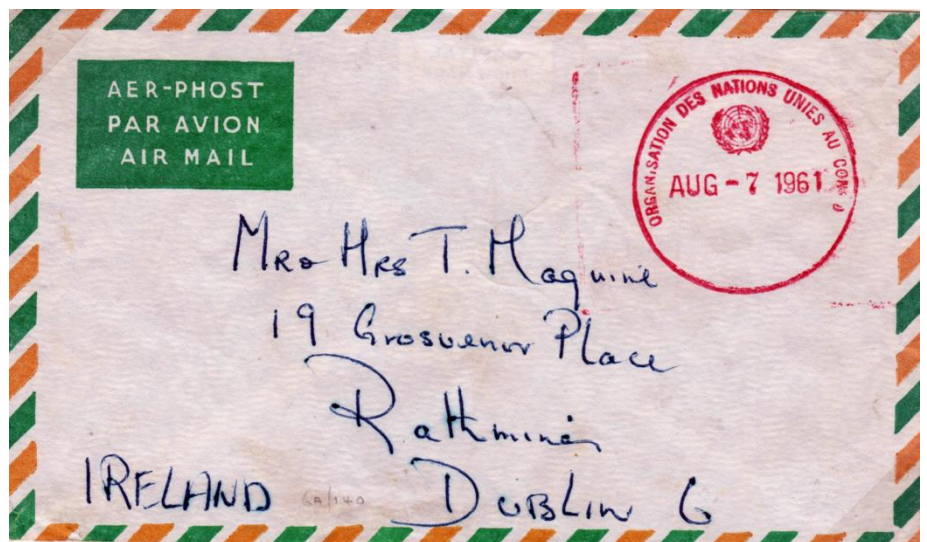 AER-PHOST
PAR AVION
AIR MAIL
ORGANISATION DES NATIONS UNIES AU CONGO
AUG - 7 1961
Mr & Mrs T. Maguire
19 Grosvenor Place
Rathmines
IRELAND DUBLIN 6